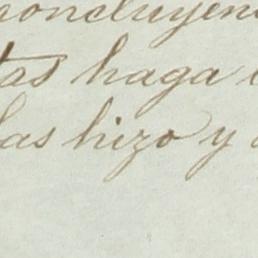 concluyen
tas haga
las hizo y